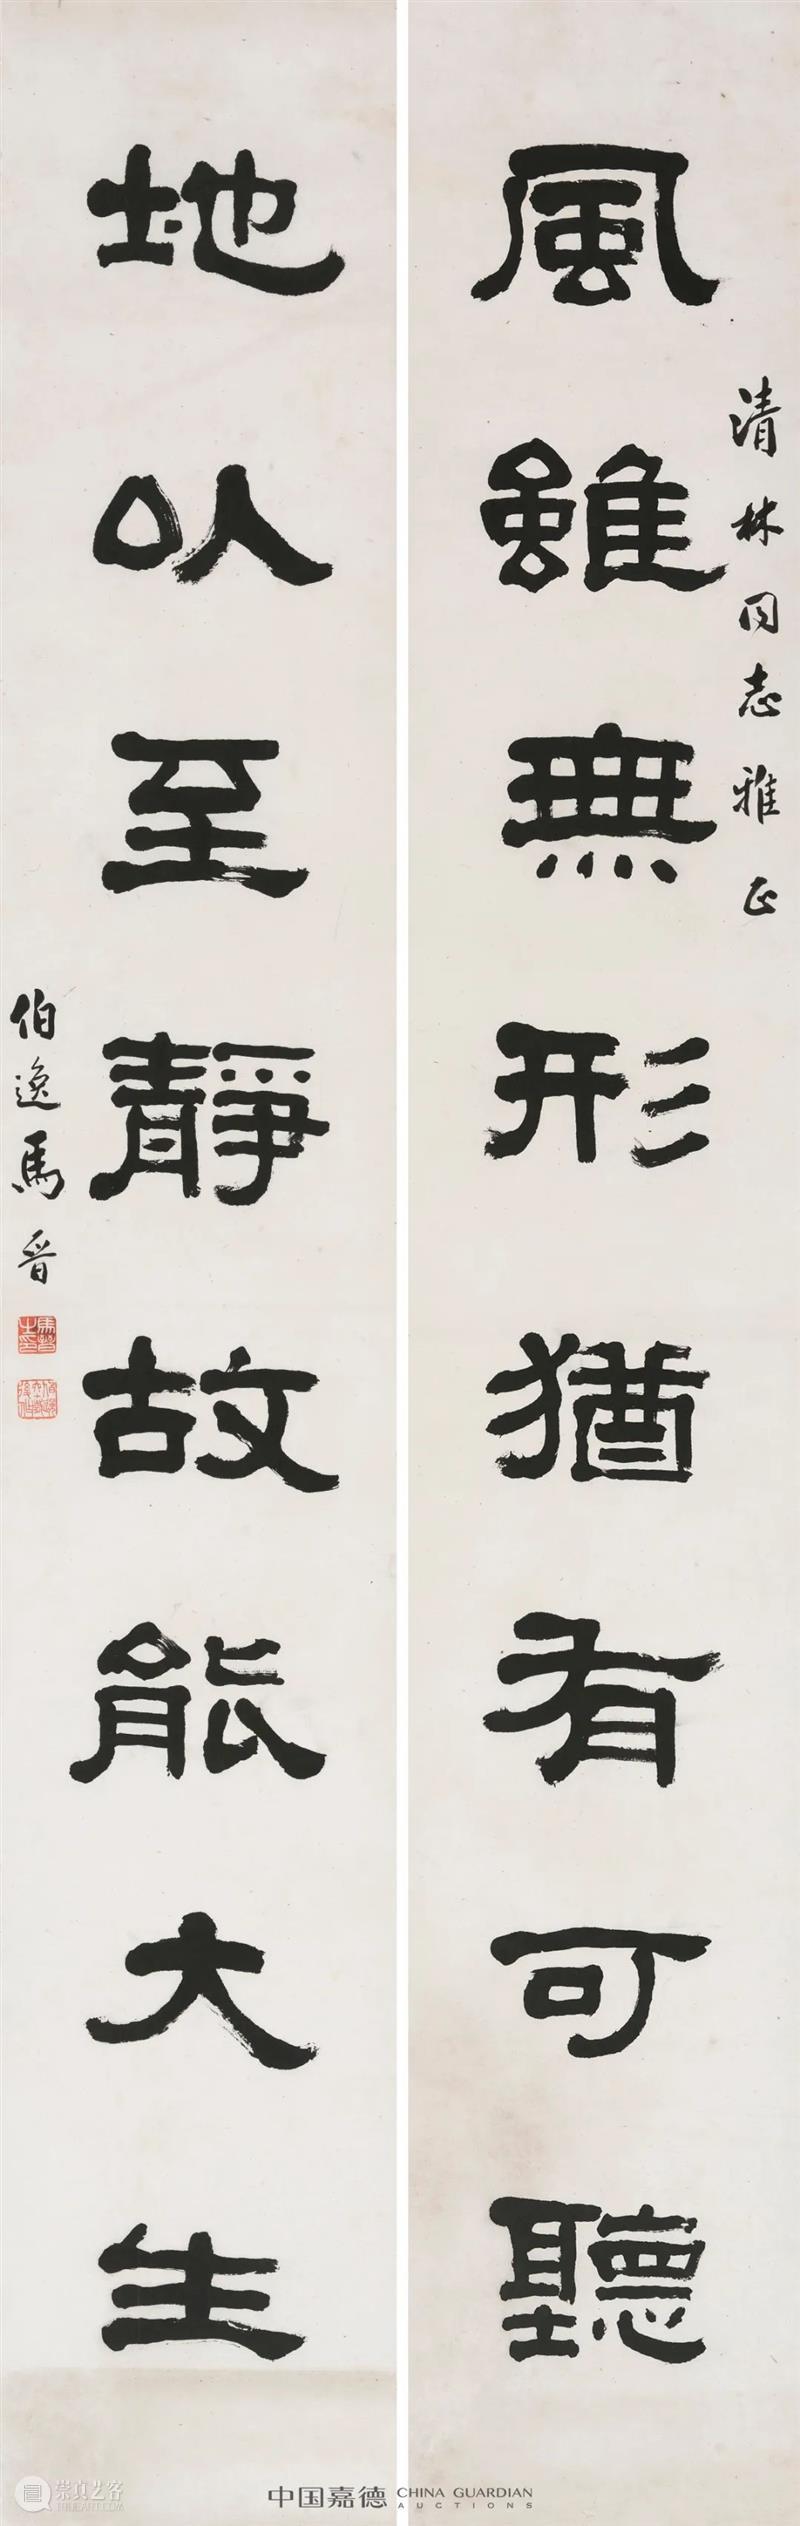 風雖無形猶有可聽
清林同志雅正
地以至靜故能大生
伯逸馬晉
中国嘉德 CHINA GUARDIAN AUCTIONS
崇真艺客